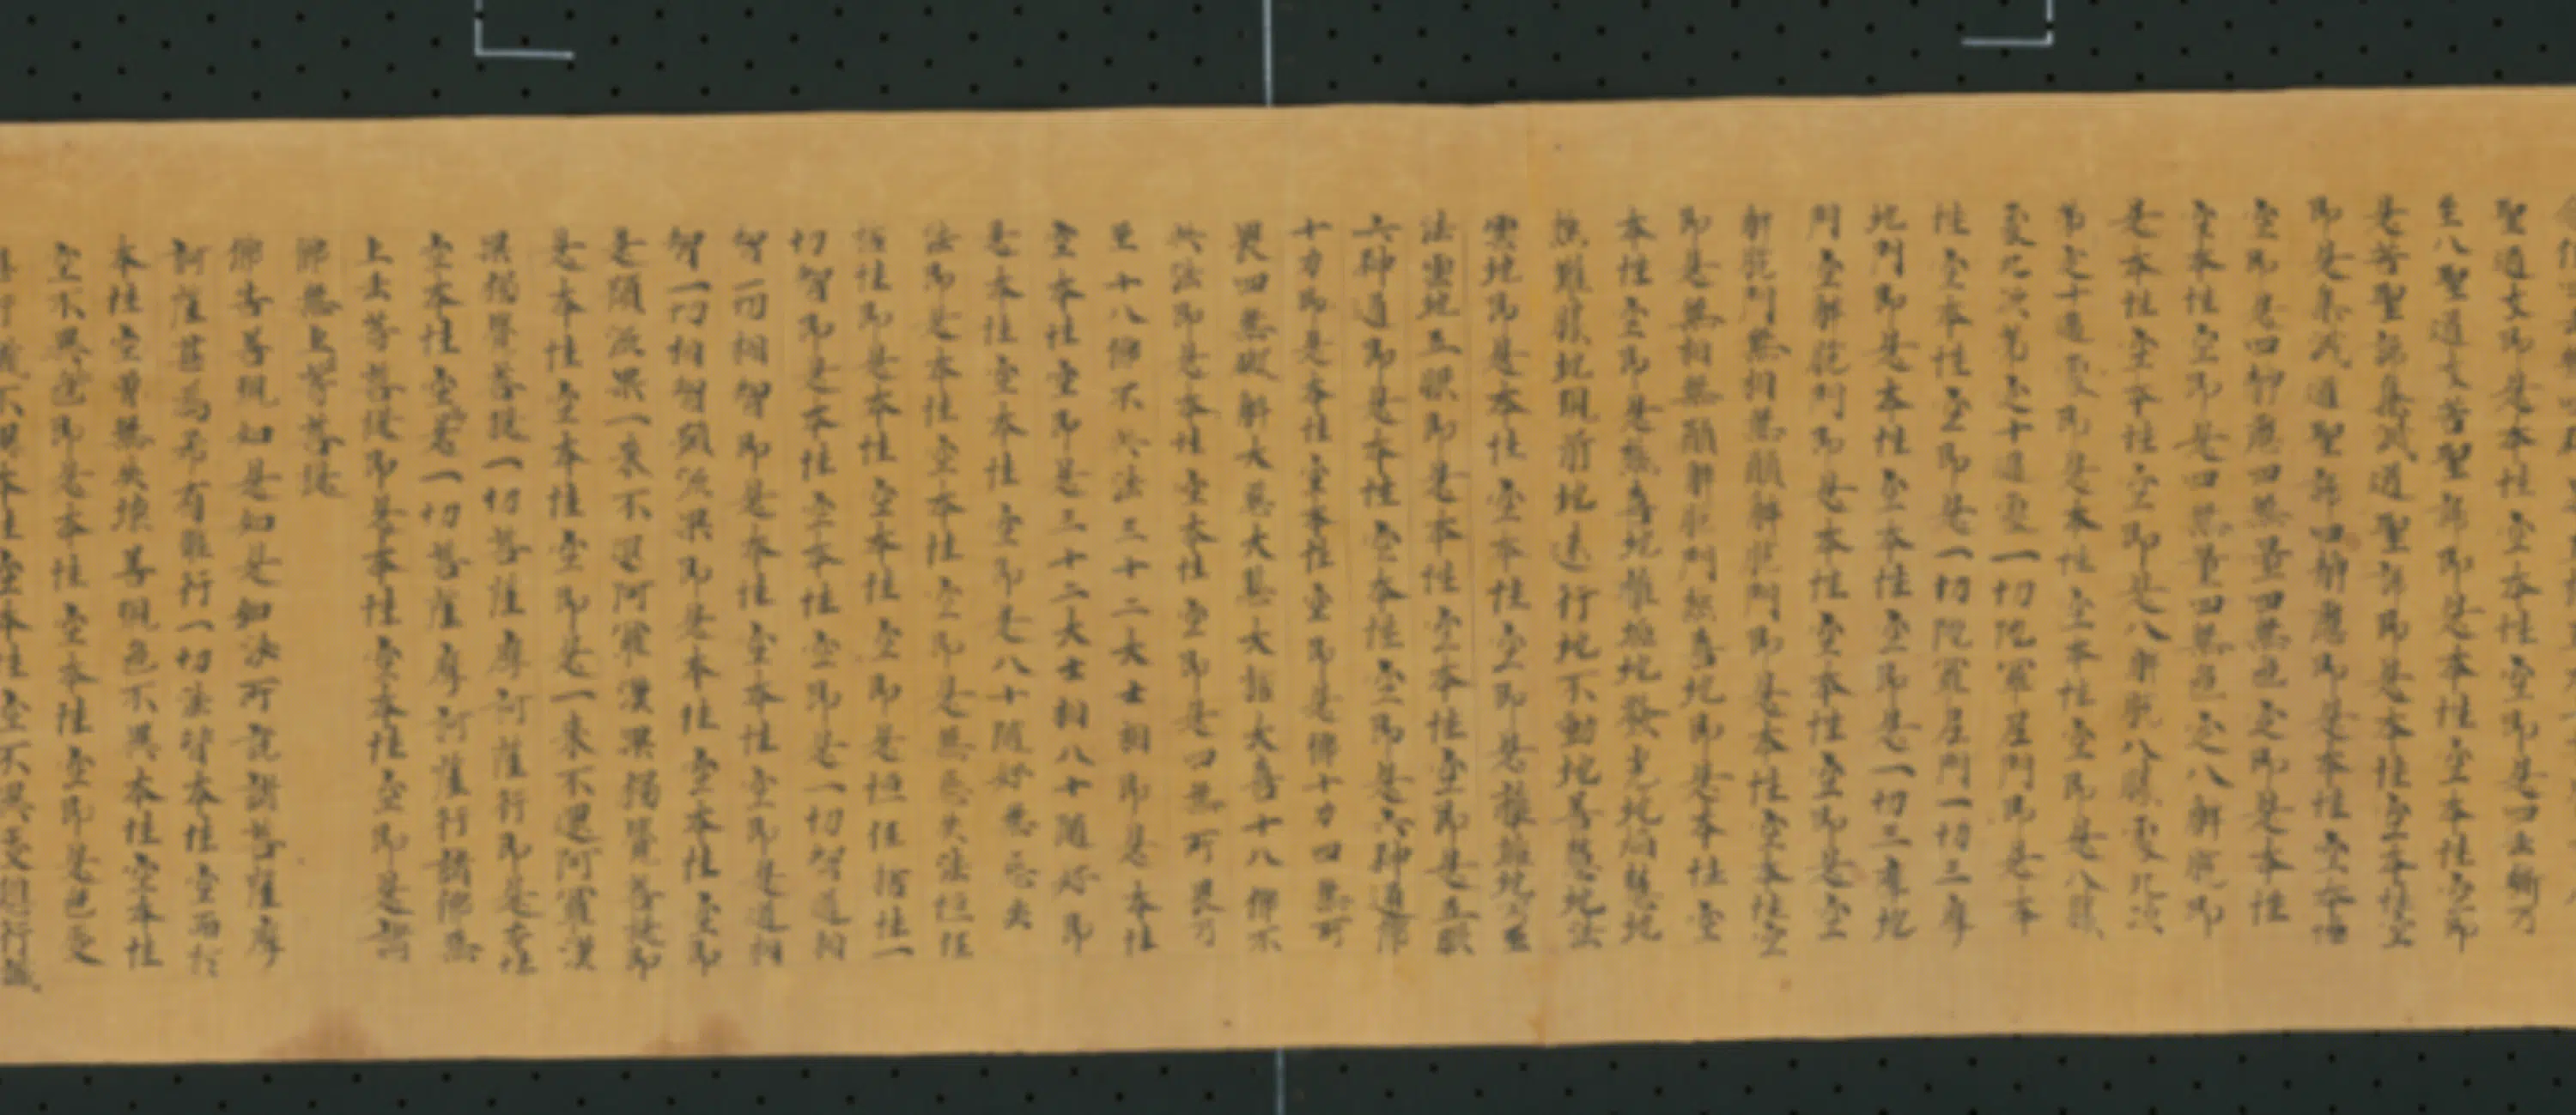 聖道支即是本性空本性空即是四念住乃
至八聖道支苦聖諦即是本性空本性空即
是苦聖諦集滅道聖諦即是本性空本性空
即是集滅道聖諦四靜慮即是本性空本性
空即是四靜慮四無量四無色定即是本性
空本性空即是四無量四無色定八解脫即
是本性空本性空即是八解脫八勝處九次
第定十遍處即是本性空本性空即是八勝
處九次第定十遍處一切陀羅尼門即是本
性空本性空即是一切陀羅尼門一切三摩
地門即是本性空本性空即是一切三摩地
門空解脫門即是本性空本性空即是空
解脫門無相無願解脫門即是本性空本性空
即是無相無願解脫門極喜地即是本性空
本性空即是極喜地離垢地發光地焰慧地
極難勝地現前地遠行地不動地善慧地法
雲地即是本性空本性空即是離垢地乃至
法雲地五眼即是本性空本性空即是五眼
六神通即是本性空本性空即是六神通佛
十力即是本性空本性空即是佛十力四無所
畏四無礙解大慈大悲大捨大喜十八佛不
共法即是本性空本性空即是四無所畏乃
至十八佛不共法三十二大士相即是本性
空本性空即是三十二大士相八十隨好即
是本性空本性空即是八十隨好無忘失
法即是本性空本性空即是無忘失法恒住
捨性即是本性空本性空即是恒住捨性一
切智即是本性空本性空即是一切智道相
智一切相智即是本性空本性空即是道相
智一切相智預流果即是本性空本性空即
是預流果一來不還阿羅漢果獨覺菩提即
是本性空本性空即是一來不還阿羅漢
果獨覺菩提一切菩薩摩訶薩行即是本性
空本性空即是一切菩薩摩訶薩行諸佛無
上正等菩提即是本性空本性空即是諸
佛無上正等菩提
佛言善現如是如是如汝所說諸菩薩摩
訶薩甚為希有難行一切法皆本性空而於
本性空曾無失壞善現色不異本性空本性
空不異色色即是本性空本性空即是色受